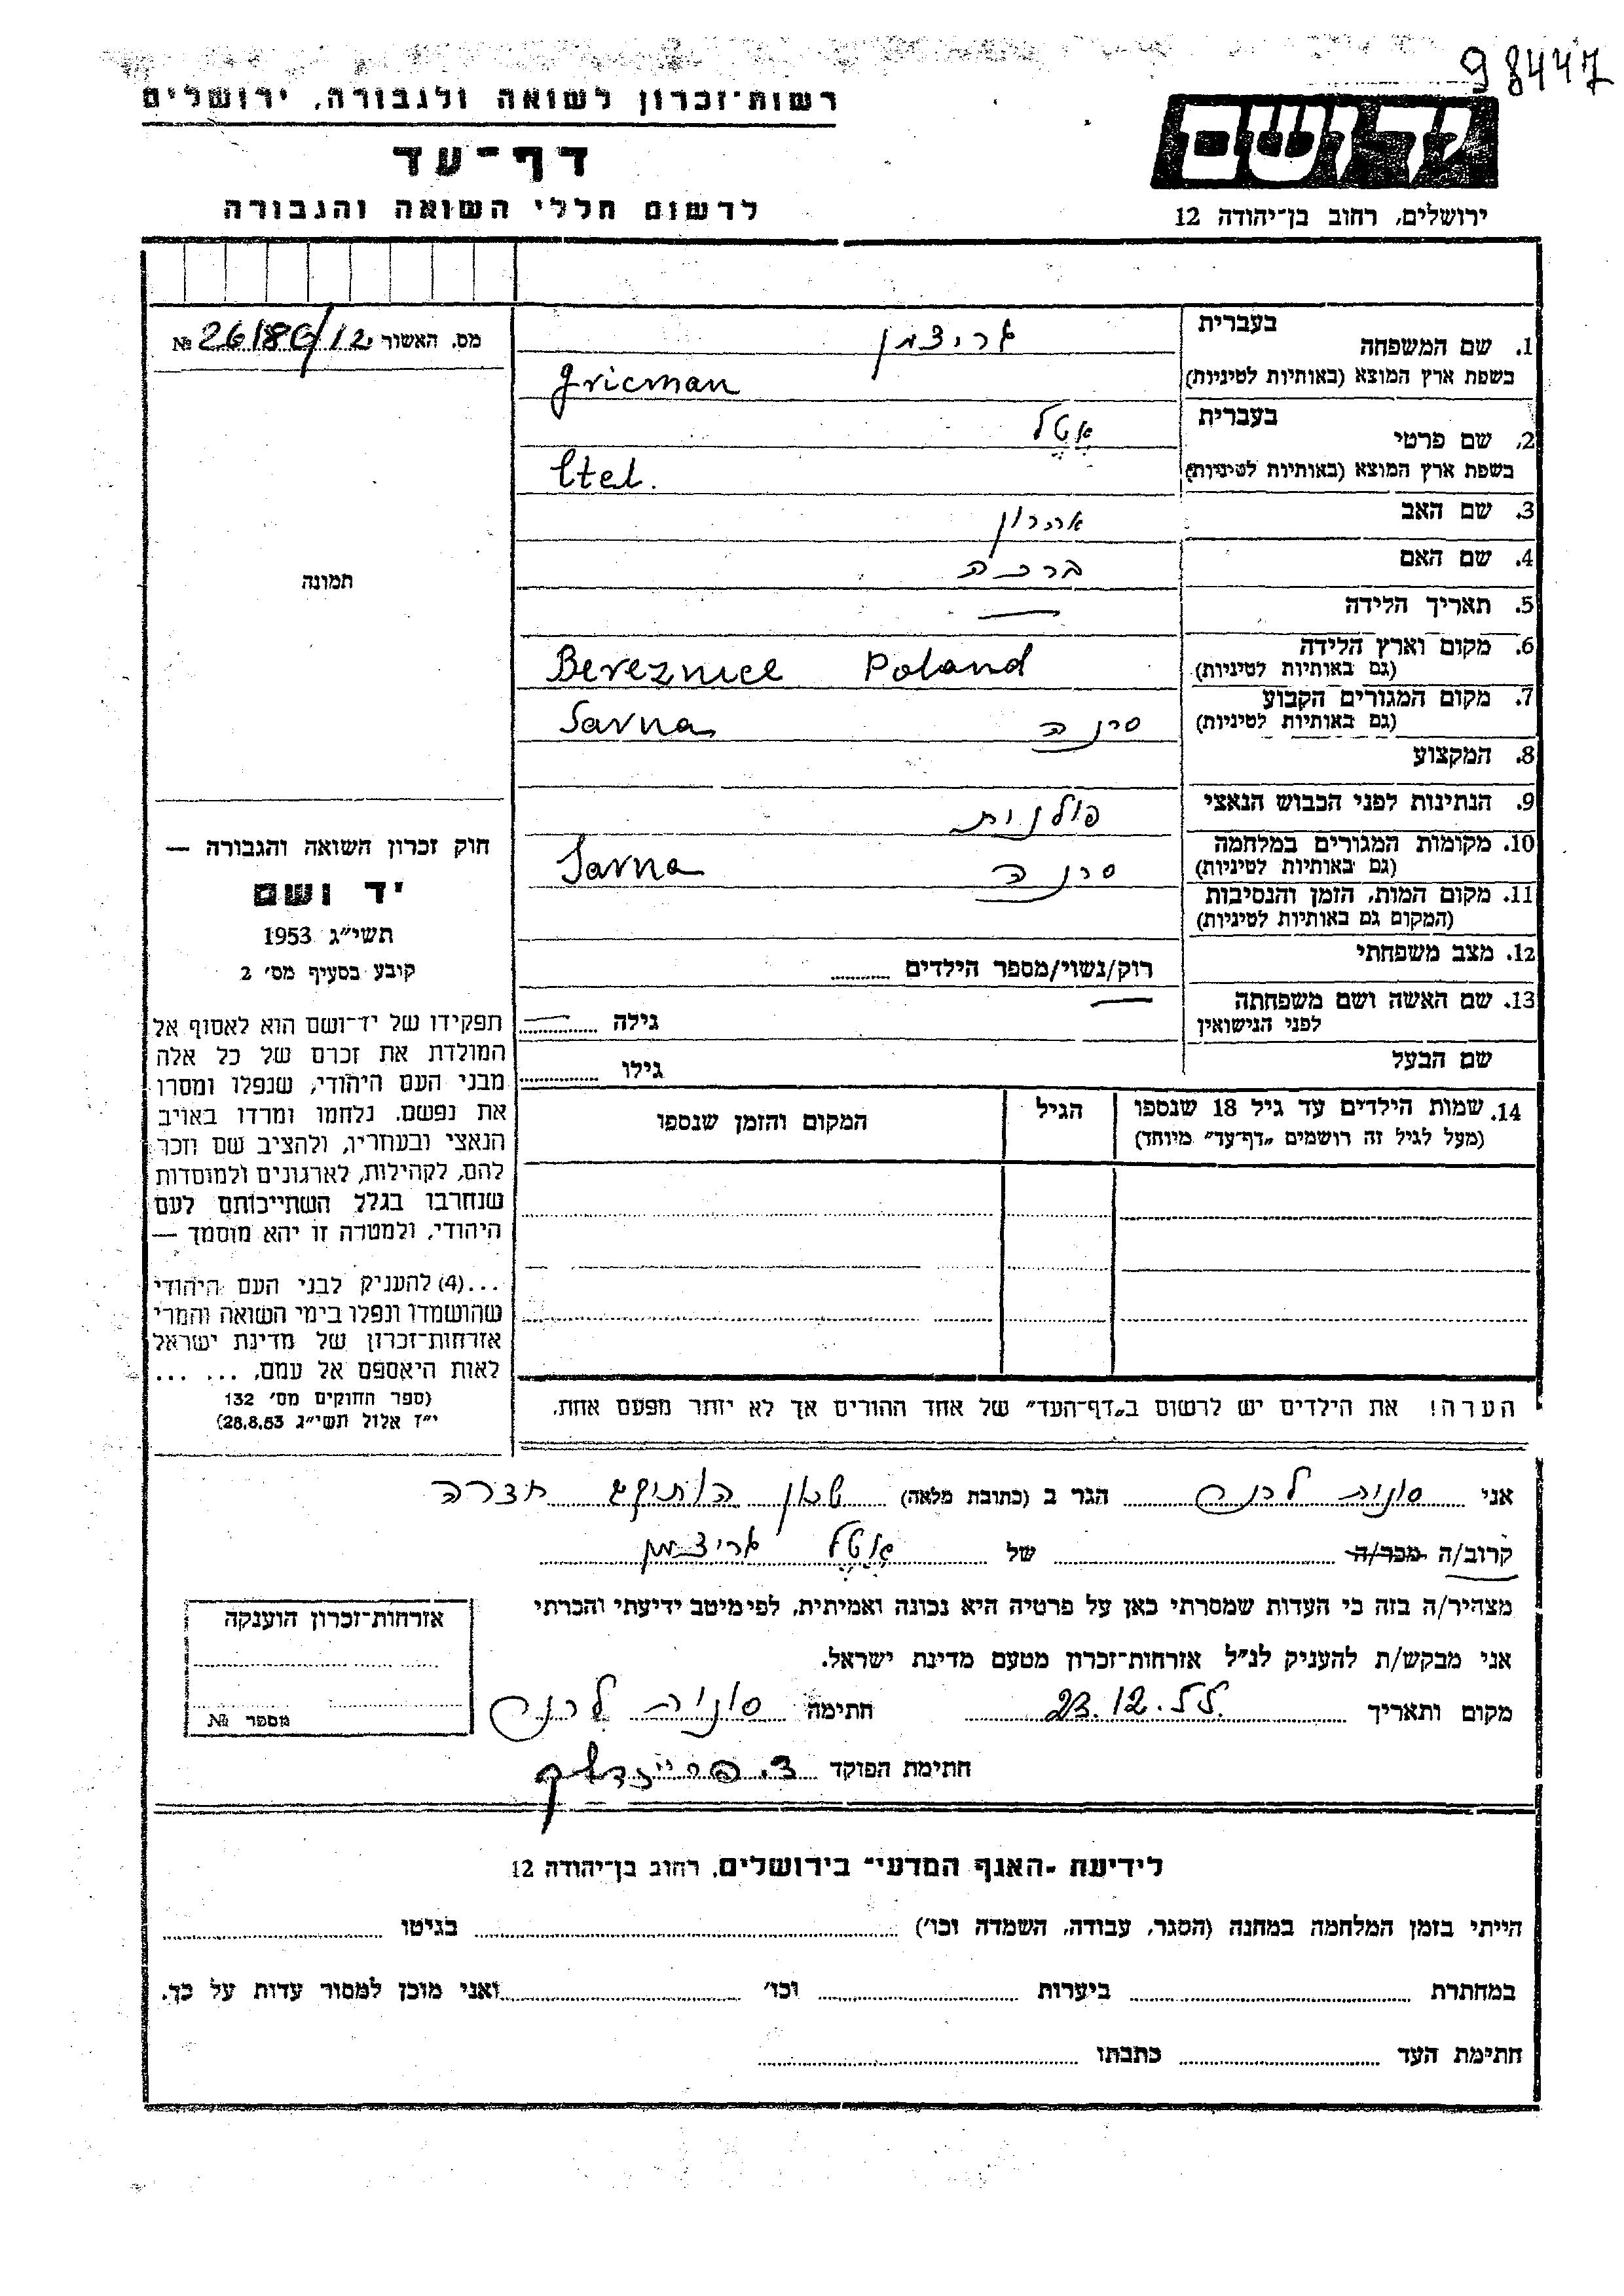 98447
רשות־זכרון לשואה ולגבורה, ירושלים
דף־עד
לרשום חללי השואה והגבורה
יד ושם
ירושלים, רחוב בן־יהודה 12
מס. האשור № 26180/12
1. שם המשפחה
בעברית גריצמן
בשפת ארץ המוצא (באותיות לטיניות) Gricman
2. שם פרטי
בעברית אֶטֶל
בשפת ארץ המוצא (באותיות לטיניות) Etel.
3. שם האב אהרון
4. שם האם ברכה
5. תאריך הלידה —
6. מקום וארץ הלידה
(גם באותיות לטיניות) Bereznice Poland
7. מקום המגורים הקבוע
(גם באותיות לטיניות) סרנה Sarna
8. המקצוע
9. הנתינות לפני הכבוש הנאצי פולנית
10. מקומות המגורים במלחמה
(גם באותיות לטיניות) סרנה Sarna
11. מקום המות, הזמן והנסיבות
(המקום גם באותיות לטיניות)
12. מצב משפחתי
רוק/נשוי/מספר הילדים
13. שם האשה ושם משפחתה —
לפני הנישואין
גילה —
שם הבעל
גילו
14. שמות הילדים עד גיל 18 שנספו
(מעל לגיל זה רושמים „דף־עד״ מיוחד)
הגיל
המקום והזמן שנספו
הערה! את הילדים יש לרשום ב„דף־העד״ של אחד ההורים אך לא יותר מפעם אחת.
תמונה
חוק זכרון השואה והגבורה —
יד ושם
תשי״ג 1953
קובע בסעיף מס׳ 2
תפקידו של יד־ושם הוא לאסוף אל
המולדת את זכרם של כל אלה
מבני העם היהודי, שנפלו ומסרו
את נפשם. נלחמו ומרדו באויב
הנאצי ובעוזריו, ולהציב שם וזכר
להם, לקהילות, לארגונים ולמוסדות
שנחרבו בגלל השתייכותם לעם
היהודי, ולמטרה זו יהא מוסמך —
...(4) להעניק לבני העם היהודי
שהושמדו ונפלו בימי השואה והמרי
אזרחות־זכרון של מדינת ישראל
לאות היאספם אל עמם. ... ...
(ספר החוקים מס׳ 132
י״ז אלול תשי״ג 28.8.53)
אני סוניה לרנר הגר ב (כתובת מלאה) שכון הותיקים חדרה
קרוב/ה מכר/ה של אֶטֶל גריצמן
מצהיר/ה בזה כי העדות שמסרתי כאן על פרטיה היא נכונה ואמיתית, לפי מיטב ידיעתי והכרתי
אני מבקש/ת להעניק לנ״ל אזרחות־זכרון מטעם מדינת ישראל.
מקום ותאריך 23.12.55 חתימה סוניה לרנר
חתימת הפוקד
אזרחות־זכרון הוענקה
מספר №
לידיעת ״האגף המדעי״ בירושלים, רחוב בן־יהודה 12
הייתי בזמן המלחמה במחנה (הסגר, עבודה, השמדה וכו׳) בגיטו
במחתרת ביערות וכו׳ ואני מוכן למסור עדות על כך.
חתימת העד כתבתו